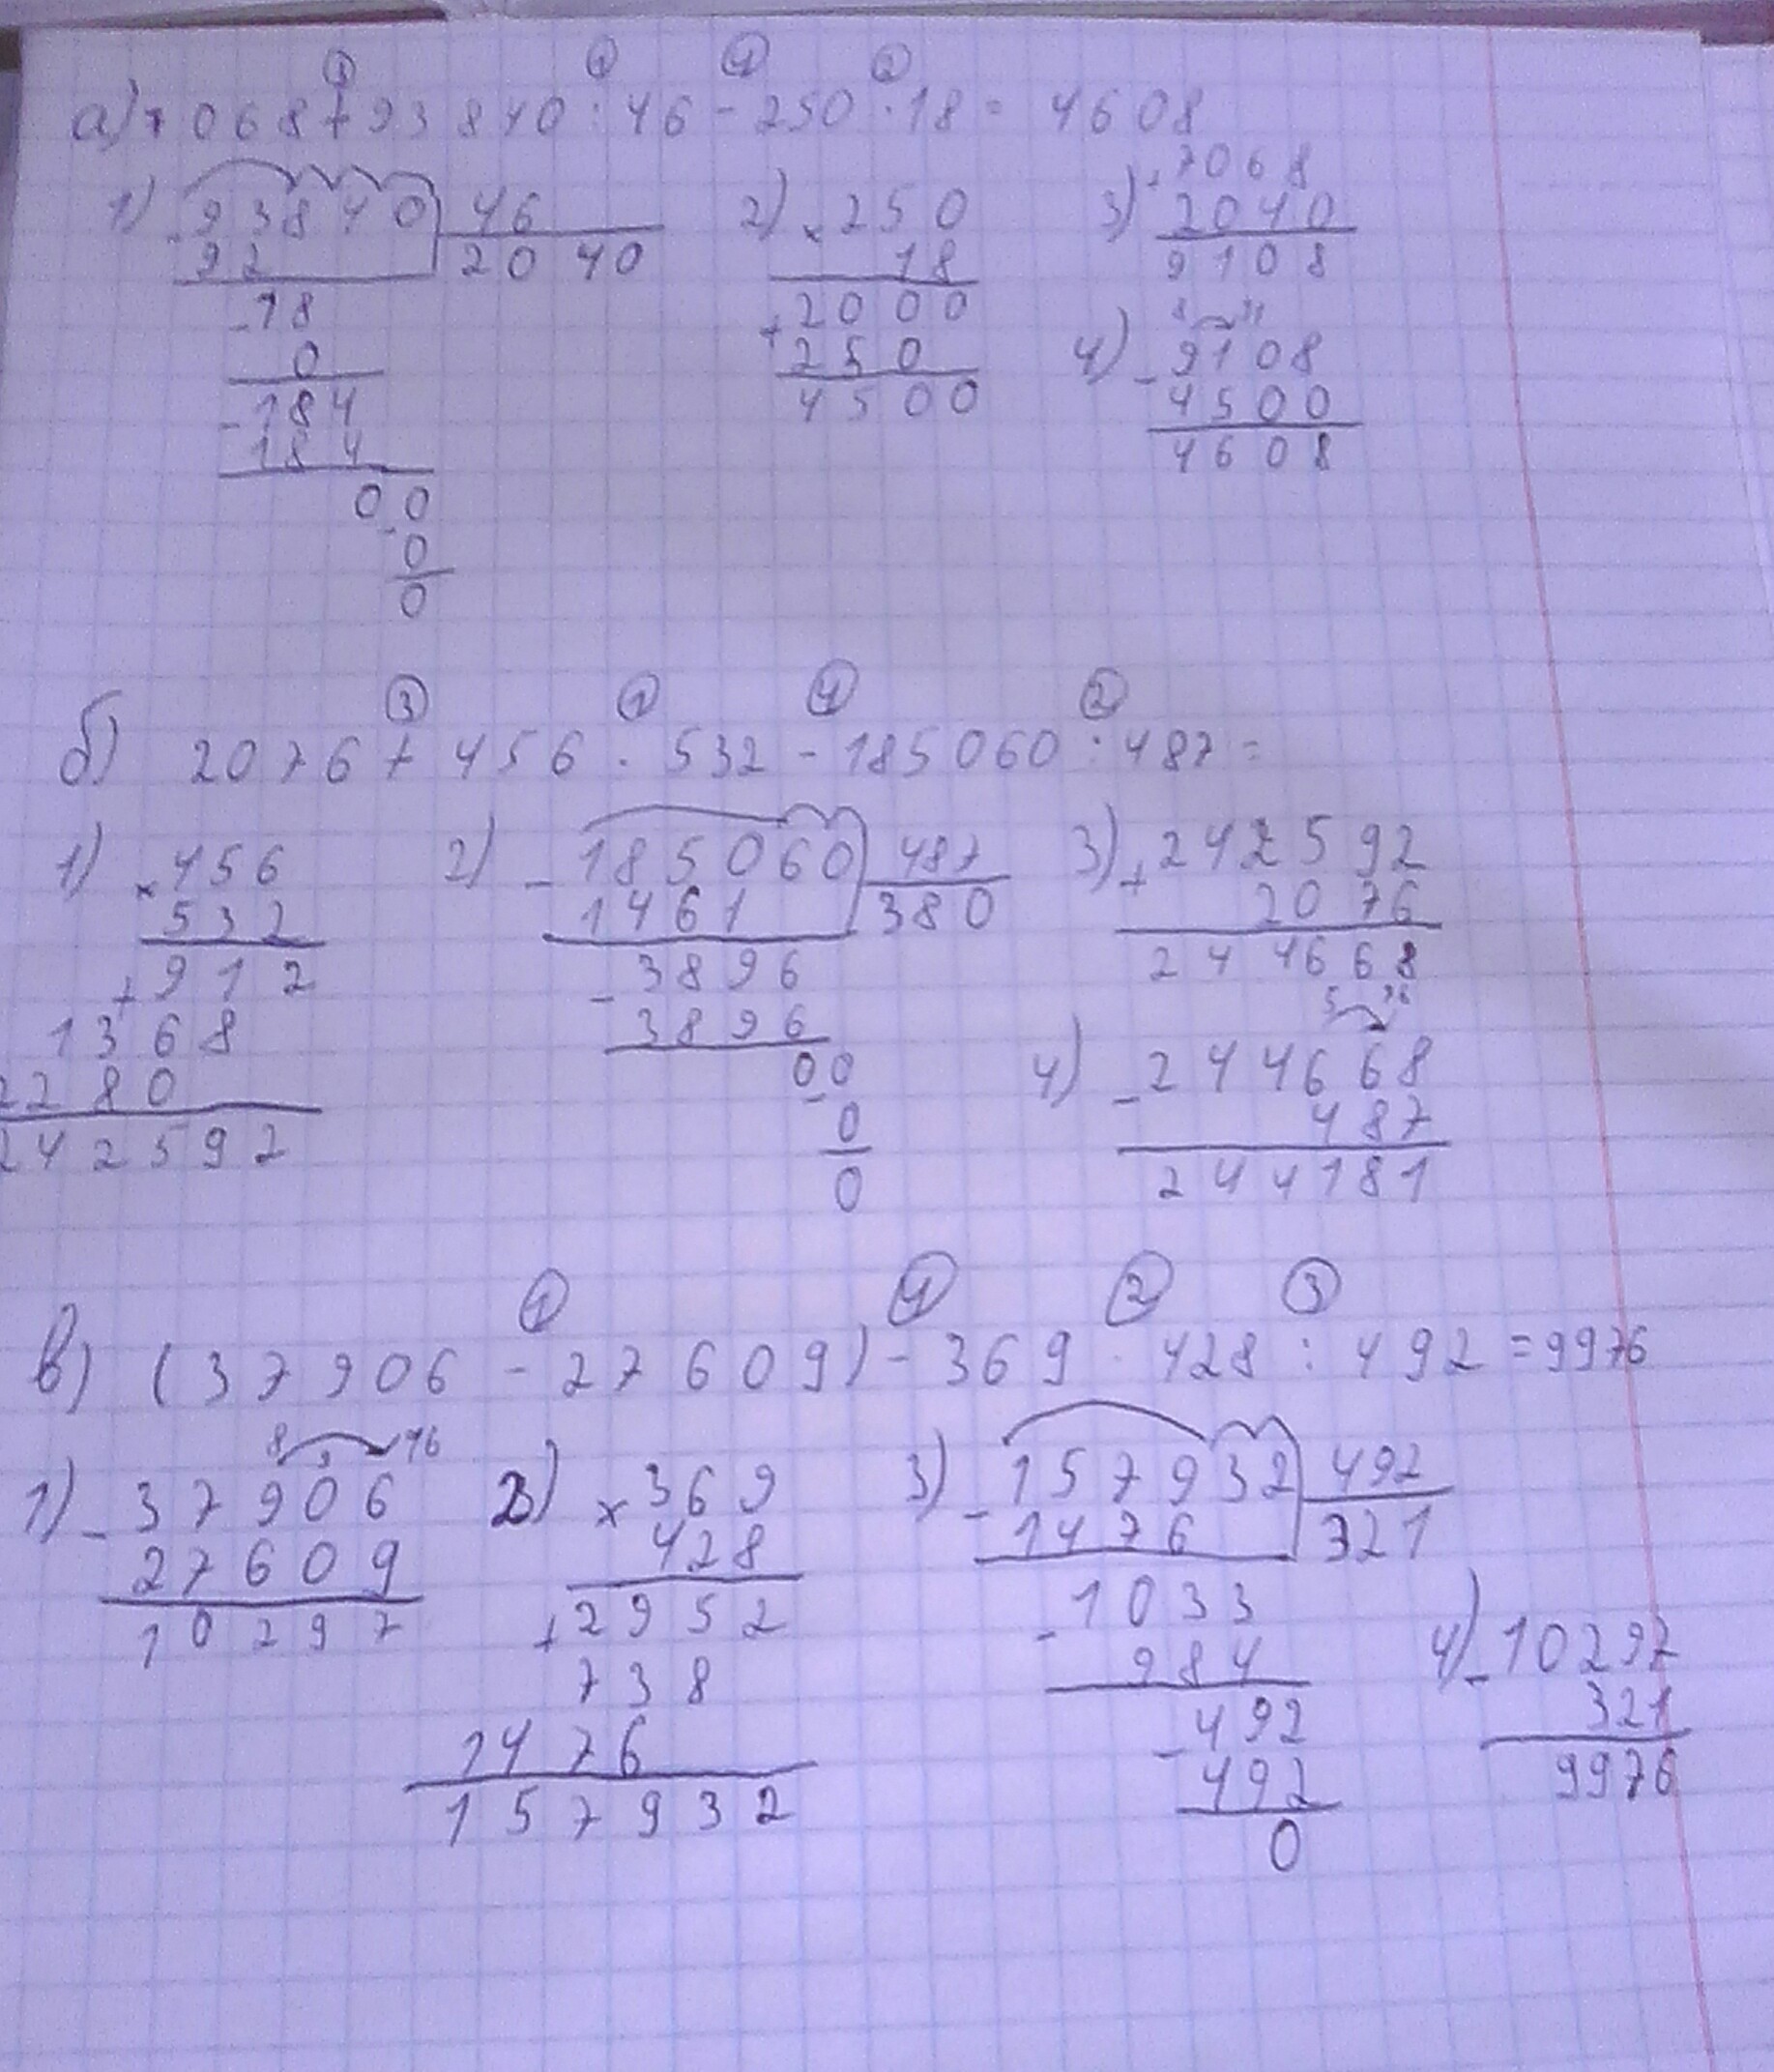 ③ ① ④ ②
а) 7068 + 93840 : 46 - 250 · 18 = 4608
1) - 93840 | 46
92 | 2040
- 18
0
- 184
184
00
- 0
0
2) × 250
18
+ 2000
250
4500
3) + 7068
2040
9108
8 11
4) - 9108
4500
4608
③ ① ④ ②
б) 2076 + 456 · 532 - 185060 : 487 =
1) × 456
532
+ 912
1368
2280
242592
2) - 185060 | 487
1461 | 380
- 3896
3896
00
- 0
0
3) + 242592
2076
244668
5 16
4) - 244668
487
244181
① ④ ② ③
в) (37906 - 27609) - 369 · 428 : 492 = 9976
8 16
1) - 37906
27609
10297
2) × 369
428
+ 2952
738
1476
157932
3) - 157932 | 492
1476 | 321
- 1033
984
- 492
492
0
4) - 10297
321
9976